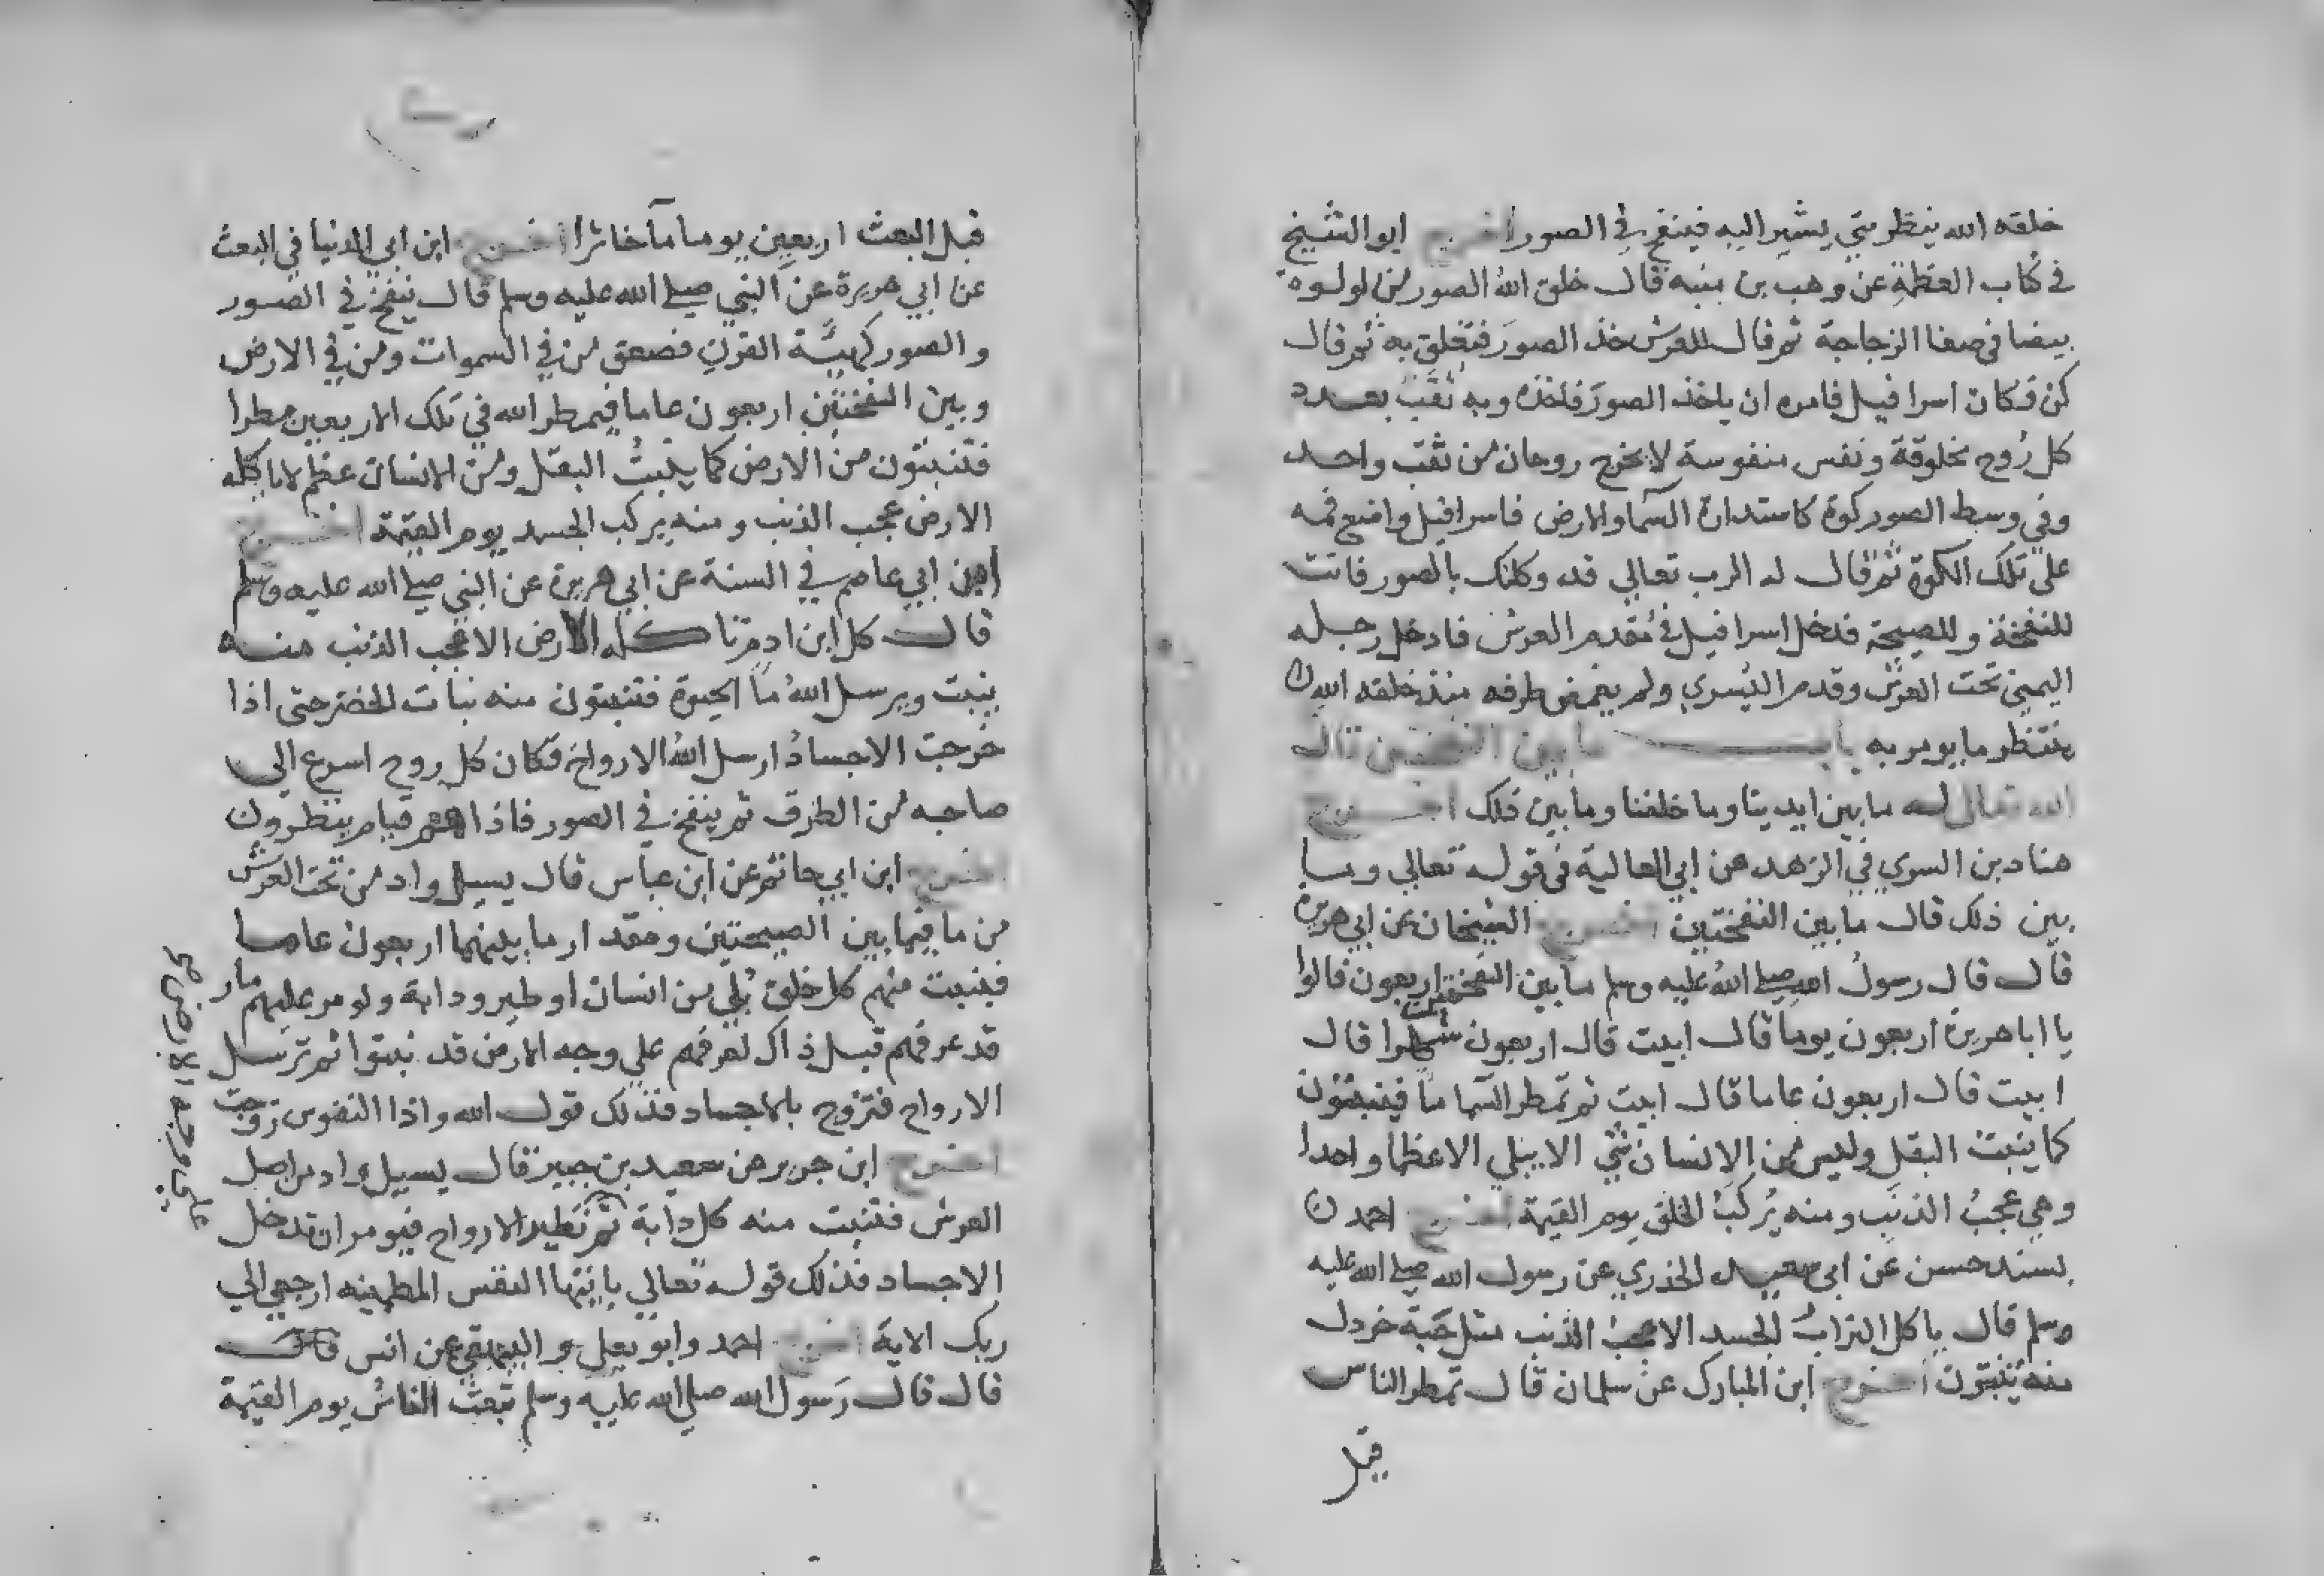 خلقه الله ينظر متي يشير اليه فينفخ في الصور اخرج ابو الشيخ
في كتاب العظمة عن وهب بن منبه قال خلق الله الصور من لولوة
بيضا في صفا الزجاجة ثم قال للعرش خذ الصور فتعلق به ثم قال
كن فكان اسرافيل فامره ان ياخذ الصور فاخذه وبه ثقب بعدد
كل روح مخلوقة ونفس منفوسة لا يخرج روحان من ثقب واحد
وفي وسط الصور كوة كاستدارة السما والارض فاسرافيل واضع فمه
علي تلك الكوة ثم قال له الرب تعالي قد وكلتك بالصور فانت
للنفخة وللصيحة فدخل اسرافيل في مقدم العرش فادخل رجله
اليمني تحت العرش وقدم اليسري ولم يغمض طرفه منذ خلقه الله
ينتظر ما يومر به باب ما بين النفختين قال
الله تعالي له ما بين ايدينا وما خلفنا وما بين ذلك اخرج
هناد بن السري في الزهد عن ابي العالية في قوله تعالي وما
بين ذلك قال ما بين النفختين اخرج الشيخان عن ابي هريرة
قال قال رسول الله صلي الله عليه وسلم ما بين النفختين اربعون قالوا
يا ابا هريرة اربعون يوما قال ابيت قال اربعون شهرا قال
ابيت قال اربعون عاما قال ابيت ثم تمطر السما ما فينبتون
كما ينبت البقل وليس من الانسان شي الا يبلي الا عظما واحدا
وهي عجب الذنب ومنه يركب الخلق يوم القيمة اخرج احمد
بسند حسن عن ابي سعيد الخدري عن رسول الله صلي الله عليه
وسلم قال ياكل التراب الجسد الا عجب الذنب مثل حبة خردل
منه ينبتون اخرج ابن المبارك عن سلمان قال تمطر الناس
قبل
قبل البعث اربعين يوما مآ خاثرا اخرج ابن ابي الدنيا في البعث
عن ابي هريرة عن النبي صلي الله عليه وسلم قال ينفخ في الصور
والصور كهيئة القرن فصعق من في السموات ومن في الارض
وبين النفختين اربعون عاما فيمطر الله في تلك الاربعين مطرا
فتنبتون من الارض كما ينبت البقل ومن الانسان عظم لا تاكله
الارض عجب الذنب ومنه يركب الجسد يوم القيمة اخرج
ابن ابي عاصم في السنة عن ابي هريرة عن النبي صلي الله عليه وسلم
قال كل ابن ادم تاكله الارض الا عجب الذنب منه
ينبت ويرسل الله ما الحيوة فتنبتون منه نبات الخضر حتى اذا
خرجت الاجساد ارسل الله الارواح فكان كل روح اسرع الي
صاحبه من الطرف ثم ينفخ في الصور فاذا هم قيام ينظرون
اخرج ابن ابي حاتم عن ابن عباس قال يسيل واد من تحت العرش
من ما فيما بين الصيحتين ومقدار ما بينهما اربعون عاما
فينبت منهم كل خلق بلي من انسان او طير ودابة ولو مر عليهم مار
قد عرفهم قبل ذاك لعرفهم علي وجه الارض قد نبتوا ثم ترسل
الارواح فتزوج بالاجساد فذلك قول الله واذا النفوس زوجت
اخرج ابن جرير عن سعيد بن جبير قال يسيل واد من اصل
العرش فتنبت منه كل دابة ثم تطير الارواح فيومر ان تدخل
الاجساد فذلك قوله تعالي يا ايتها النفس المطمينه ارجعي الي
ربك الاية اخرج احمد وابو يعلي والبيهقي عن انس قال
قال قال رسول الله صلي الله عليه وسلم تبعث الناس يوم القيمة
علي وجه الارض